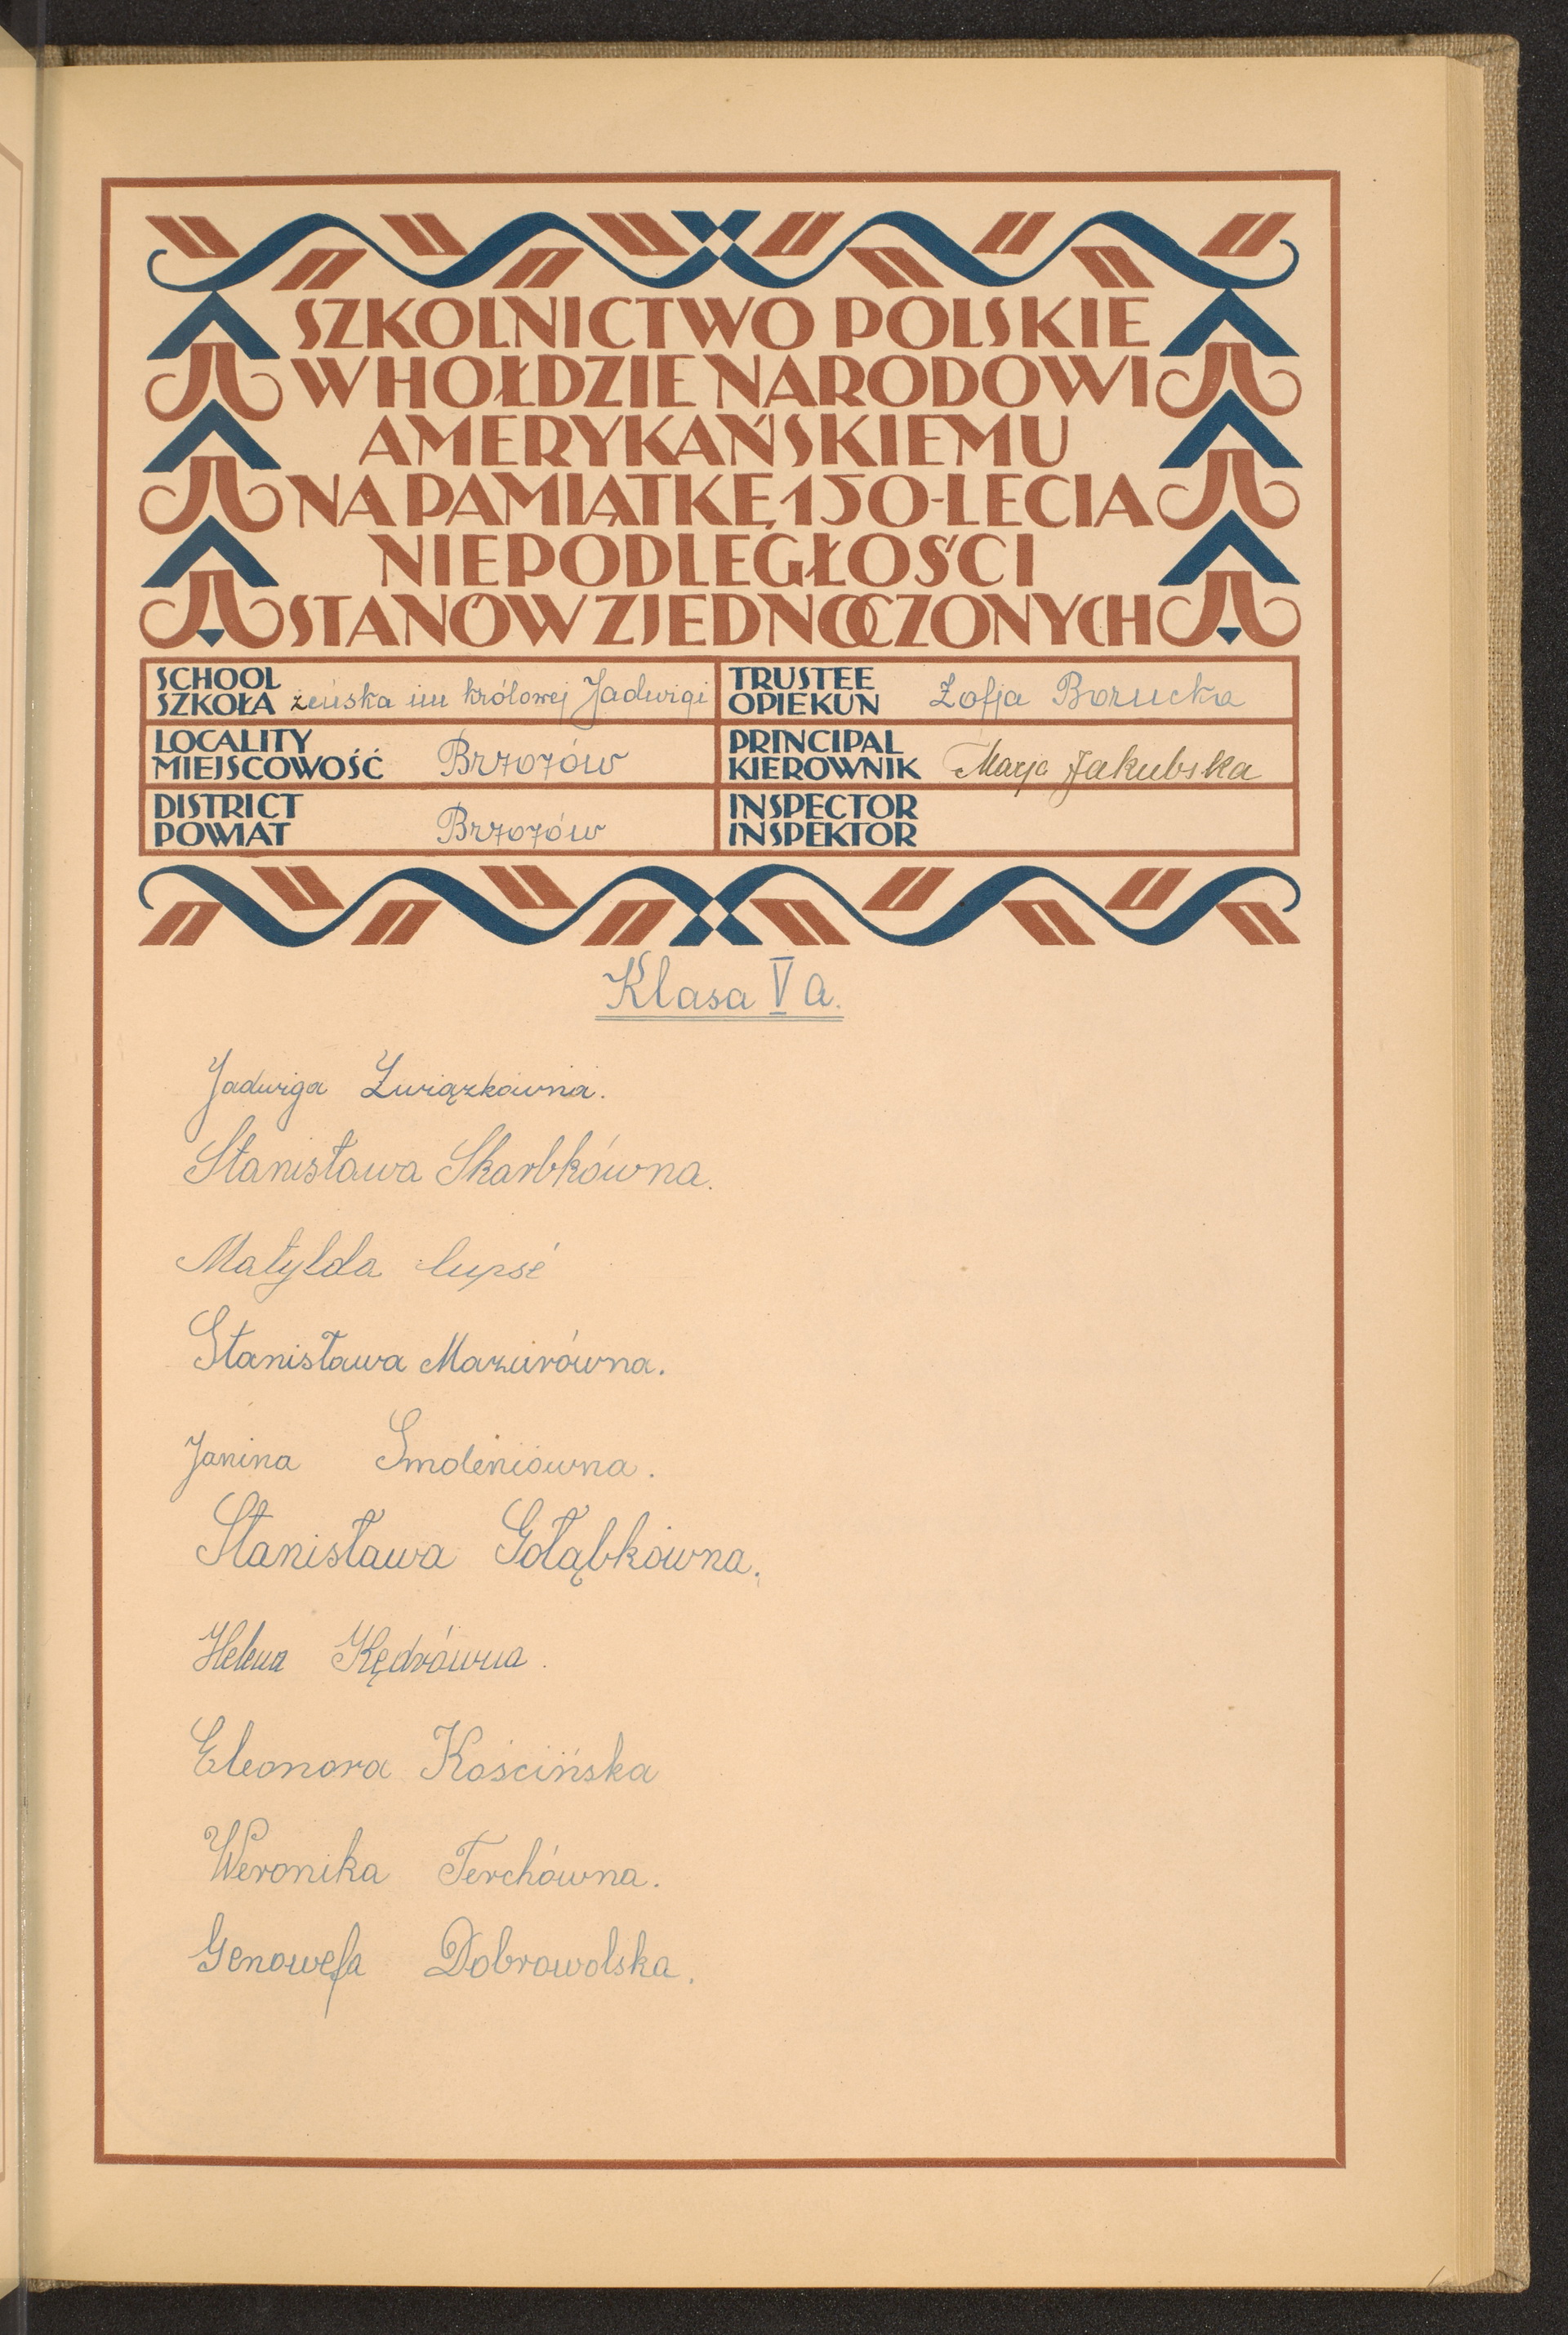 SZKOLNICTWO POLSKIE
W HOŁDZIE NARODOWI
AMERYKAŃSKIEMU
NA PAMIĄTKĘ 150-LECIA
NIEPODLEGŁOŚCI
STANÓW ZJEDNOCZONYCH
SCHOOL
SZKOŁA żeńska im królowej Jadwigi
TRUSTEE
OPIEKUN Zofja Borucka
LOCALITY
MIEJSCOWOŚĆ Brzozów
PRINCIPAL
KIEROWNIK Marja Jakubska
DISTRICT
POWIAT Brzozów
INSPECTOR
INSPEKTOR
Klasa V a.
Jadwiga Związkówna.
Stanisława Skarbkówna.
Matylda
Stanisława Mazurówna.
Janina Smoleniówna.
Stanisława Gołąbkówna.
Helena Kędrówna.
Eleonora Kościńska
Weronika Terchówna.
Genowefa Dobrowolska.